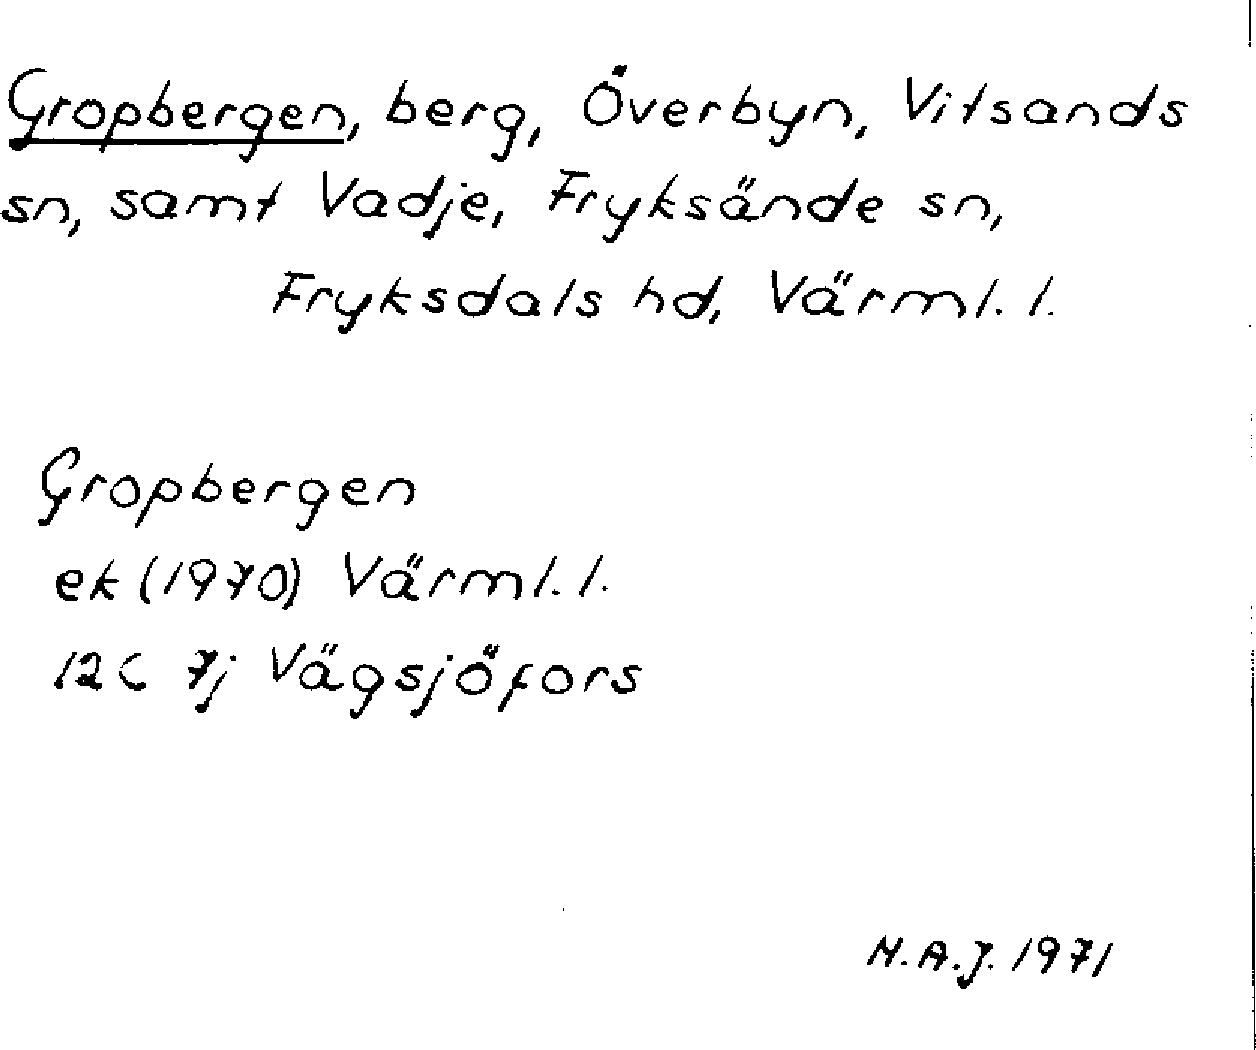 Gropbergen, berg, Överbyn, Vitsands
sn, samt Vadje, Fryksände sn,
Fryksdals hd, Värml. l.
Gropbergen
ek (1970) Värml. l.
12C 7j Vägsjöfors
N.A.J. 1971